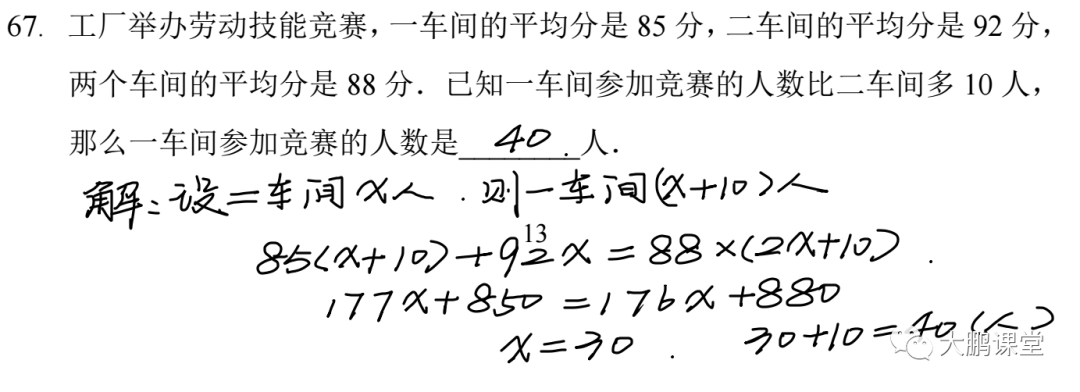 67. 工厂举办劳动技能竞赛，一车间的平均分是 85 分，二车间的平均分是 92 分，
两个车间的平均分是 88 分．已知一车间参加竞赛的人数比二车间多 10 人，
那么一车间参加竞赛的人数是 40 人．
解：设二车间 x 人．则一车间(x+10)人
13
85(x+10)+92x=88×(2x+10)．
177x+850=176x+880
x=30． 30+10=40(人)
大鹏课堂